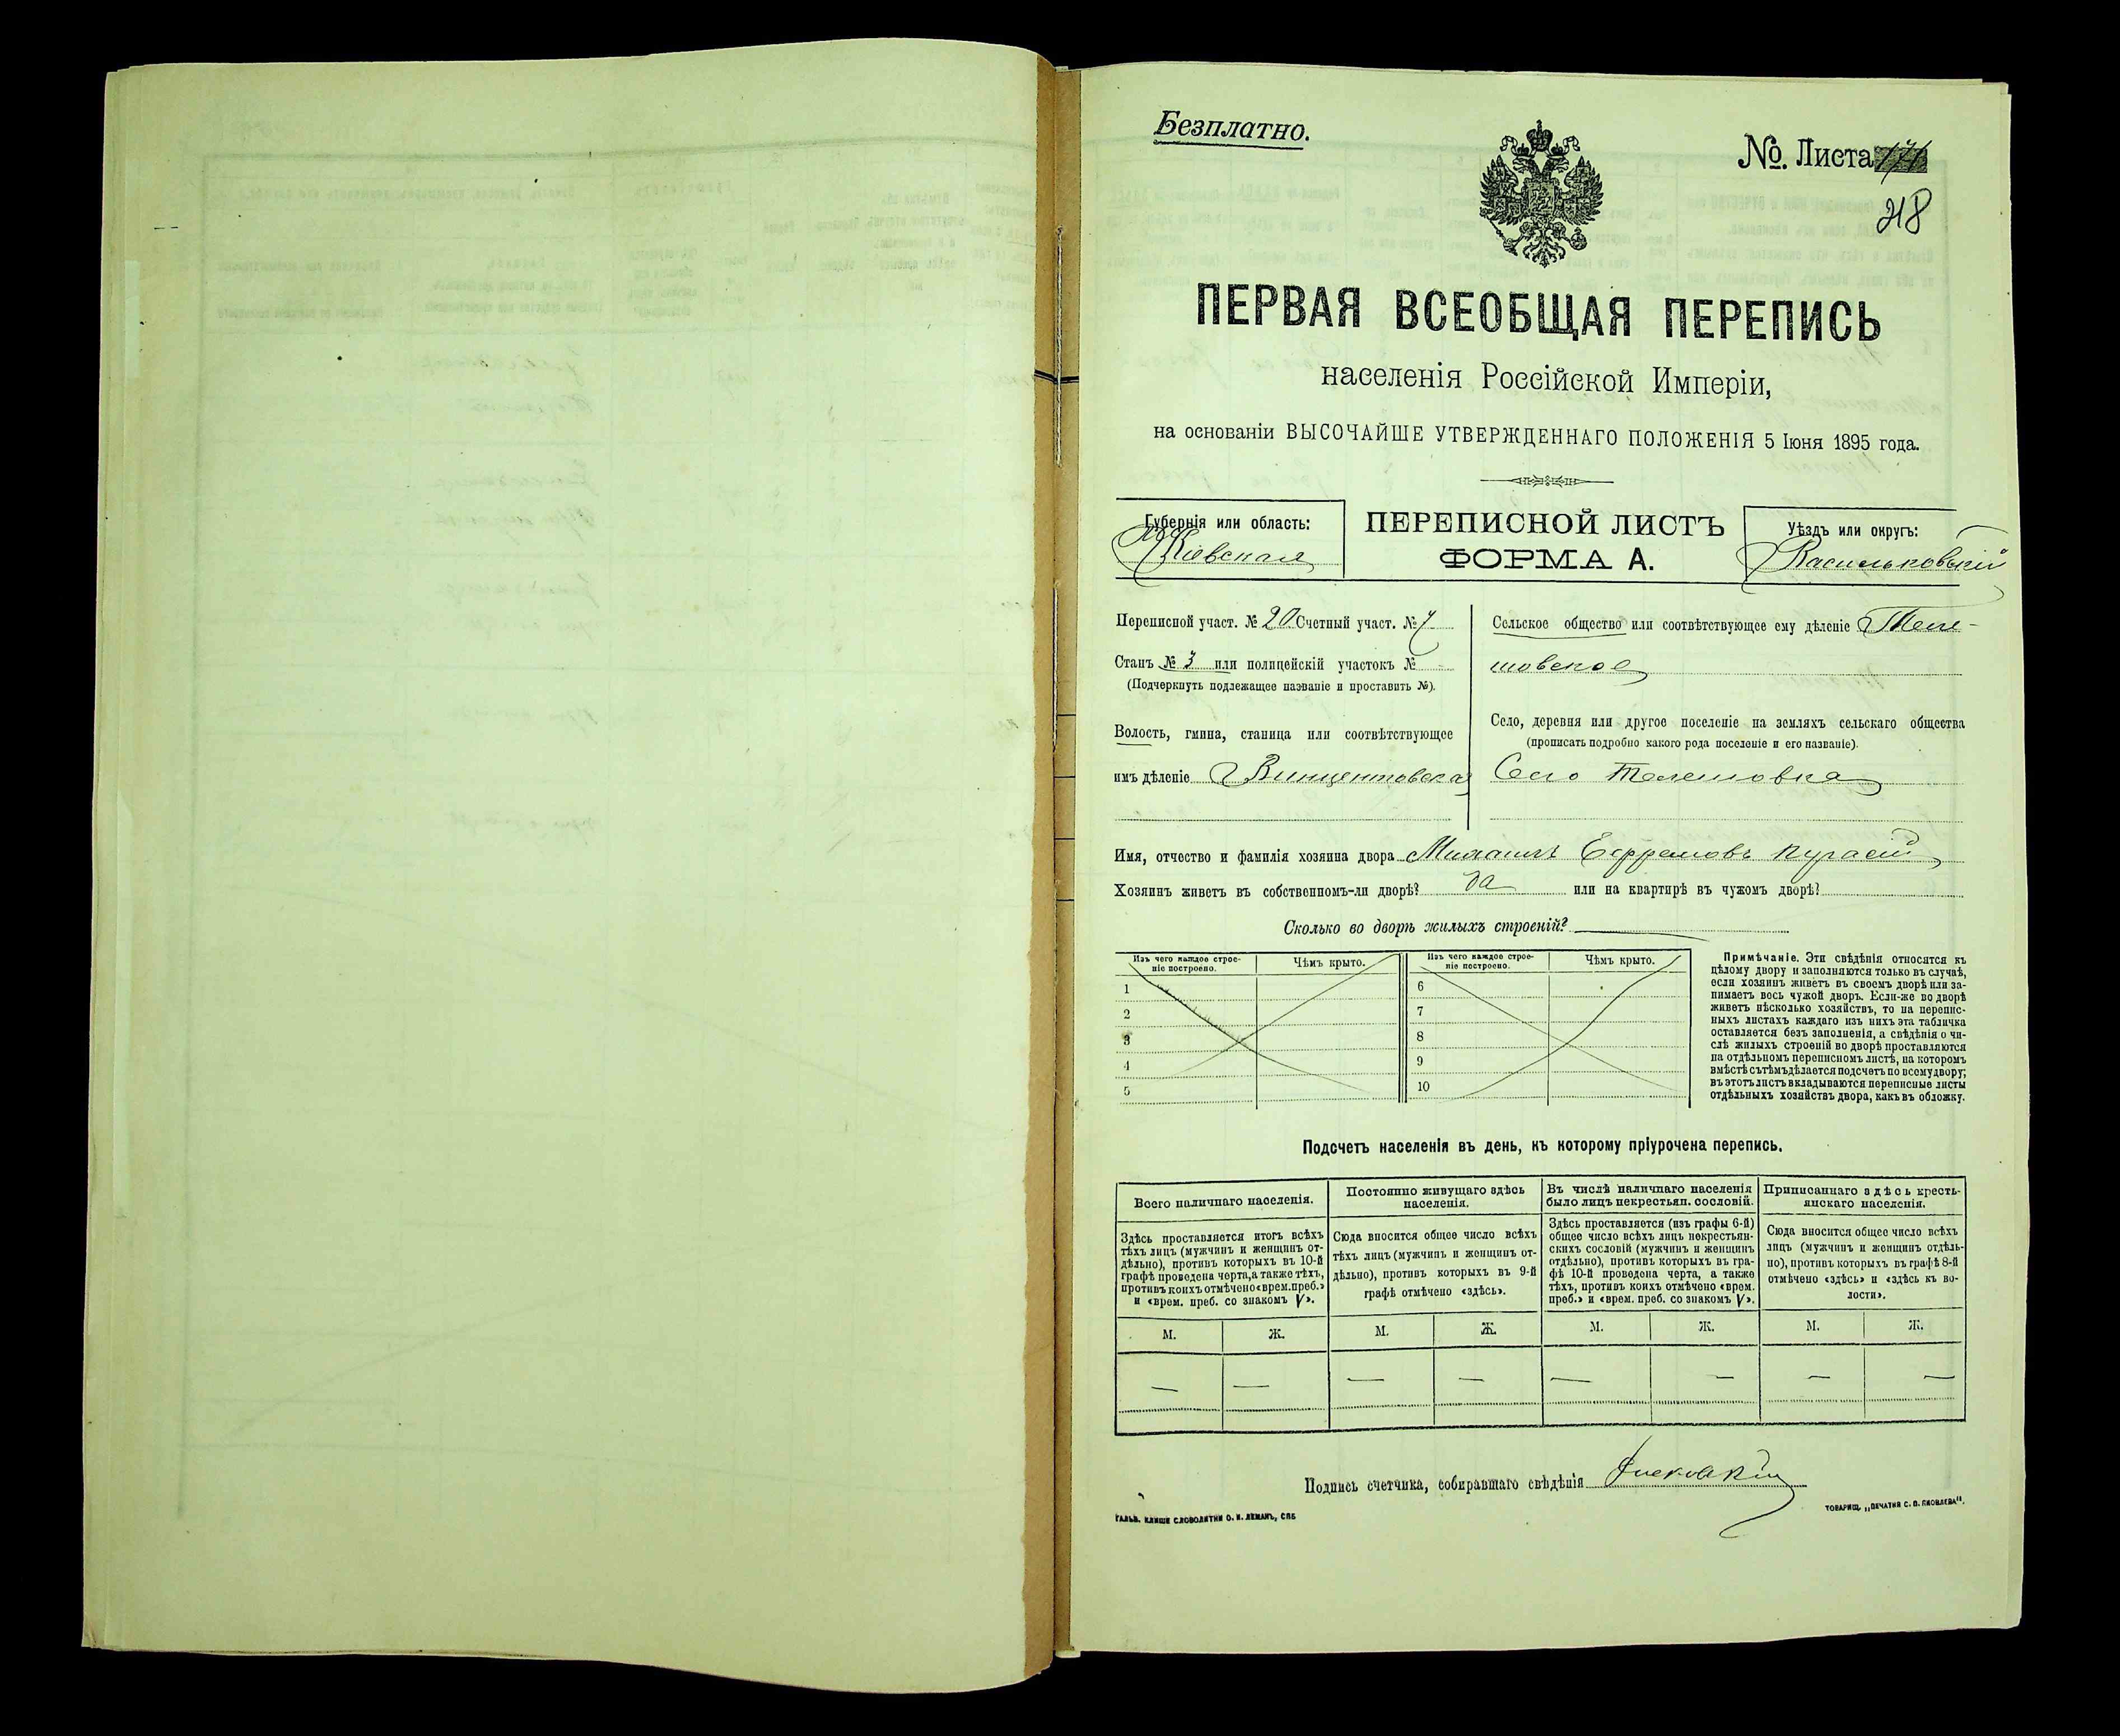 Безплатно.
№. Листа 171
218
ПЕРВАЯ ВСЕОБЩАЯ ПЕРЕПИСЬ
населенія Россійской Имперіи,
на основаніи ВЫСОЧАЙШЕ УТВЕРЖДЕННАГО ПОЛОЖЕНІЯ 5 Іюня 1895 года.
Губернія или область:
Кіевская
ПЕРЕПИСНОЙ ЛИСТЪ
ФОРМА А.
Уѣздъ или округъ:
Васильковскій
Переписной участ. № 20 Счетный участ. № 7
Станъ № 3 или полицейскій участокъ № -
(Подчеркнуть подлежащее названіе и проставить №).
Волость, гмина, станица или соотвѣтствующее
имъ дѣленіе Винцентовская
Сельское общество или соотвѣтствующее ему дѣленіе Теле-
шовское
Село, деревня или другое поселеніе на земляхъ сельскаго общества
(прописать подробно какого рода поселеніе и его названіе).
Село Телешовка
Имя, отчество и фамилія хозяина двора Михаилъ Ефремовъ
Хозяинъ живетъ въ собственномъ-ли дворѣ? да или на квартирѣ въ чужомъ дворѣ?
Сколько во дворѣ жилыхъ строеній?
Изъ чего каждое строе-
ніе построено.
Чѣмъ крыто.
1
2
3
4
5
Изъ чего каждое строе-
ніе построено.
Чѣмъ крыто.
6
7
8
9
10
Примѣчаніе. Эти свѣдѣнія относятся къ
цѣлому двору и заполняются только въ случаѣ,
если хозяинъ живетъ въ своемъ дворѣ или за-
нимаетъ весь чужой дворъ. Если-же во дворѣ
живетъ нѣсколько хозяйствъ, то на перепис-
ныхъ листахъ каждаго изъ нихъ эта табличка
оставляется безъ заполненія, а свѣдѣнія о чи-
слѣ жилыхъ строеній во дворѣ проставляются
на отдѣльномъ переписномъ листѣ, на которомъ
вмѣстѣ съ тѣмъ дѣлается подсчетъ по всему двору;
въ этотъ листъ вкладываются переписные листы
отдѣльныхъ хозяйствъ двора, какъ въ обложку.
Подсчетъ населенія въ день, къ которому пріурочена перепись.
Всего наличнаго населенія.
Здѣсь проставляется итогъ всѣхъ
тѣхъ лицъ (мужчинъ и женщинъ от-
дѣльно), противъ которыхъ въ 10-й
графѣ проведена черта, а также тѣхъ,
противъ коихъ отмѣчено «врем. преб.»
и «врем. преб. со знакомъ V».
Постоянно живущаго здѣсь
населенія.
Сюда вносится общее число всѣхъ
тѣхъ лицъ (мужчинъ и женщинъ от-
дѣльно), противъ которыхъ въ 9-й
графѣ отмѣчено «здѣсь».
Въ числѣ наличнаго населенія
было лицъ некрестьян. сословій.
Здѣсь проставляется (изъ графы 6-й)
общее число всѣхъ лицъ некрестьян-
скихъ сословій (мужчинъ и женщинъ
отдѣльно), противъ которыхъ въ гра-
фѣ 10-й проведена черта, а также
тѣхъ, противъ коихъ отмѣчено «врем.
преб.» и «врем. преб. со знакомъ V».
Приписаннаго здѣсь кресть-
янскаго населенія.
Сюда вносится общее число всѣхъ
лицъ (мужчинъ и женщинъ отдѣль-
но), противъ которыхъ въ графѣ 8-й
отмѣчено «здѣсь» и «здѣсь къ во-
лости».
М. Ж. М. Ж. М. Ж. М. Ж.
— — — — — — — —
Подпись счетчика, собиравшаго свѣдѣнія
ГАЛЬВ. КЛИШЕ СЛОВОЛИТНИ О. И. ЛЕМАНЪ, СПБ
ТОВАРИЩ. „ПЕЧАТНЯ С. П. ЯКОВЛЕВА".